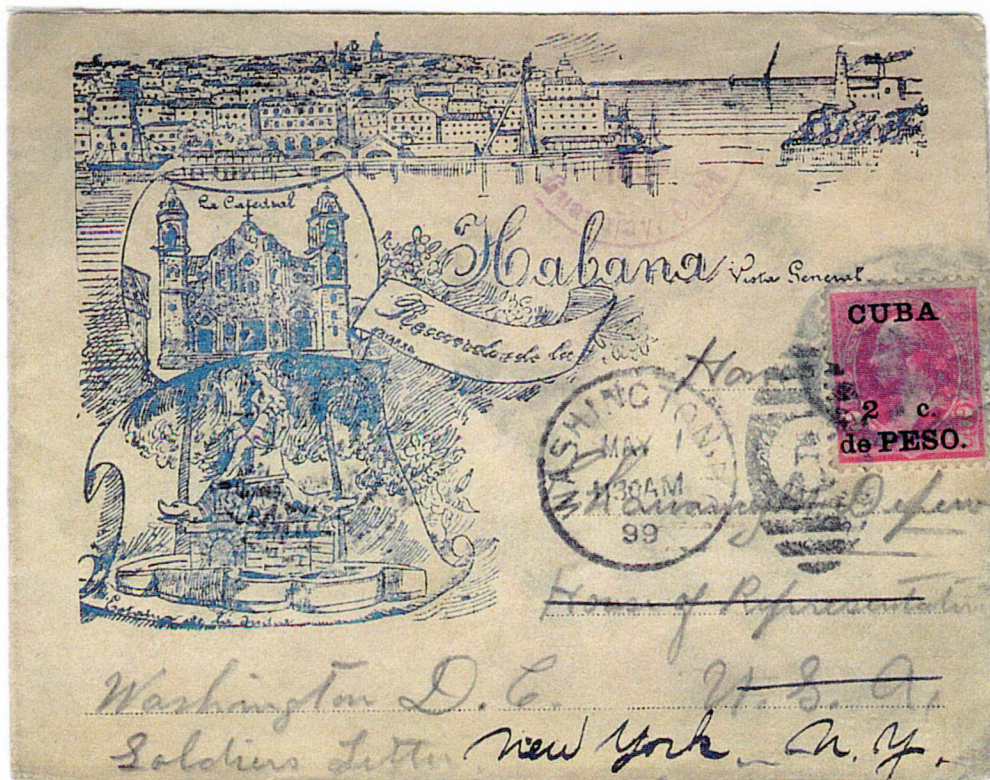 La Catedral
Habana Vista General
Recuerdo de la
CUBA
2 c.
de PESO.
Hon
WASHINGTON,
MAY 1
1130AM
99
Depew
House of Representativ
Washington D. C. U. S. A.
Soldiers Letter new York N. Y.